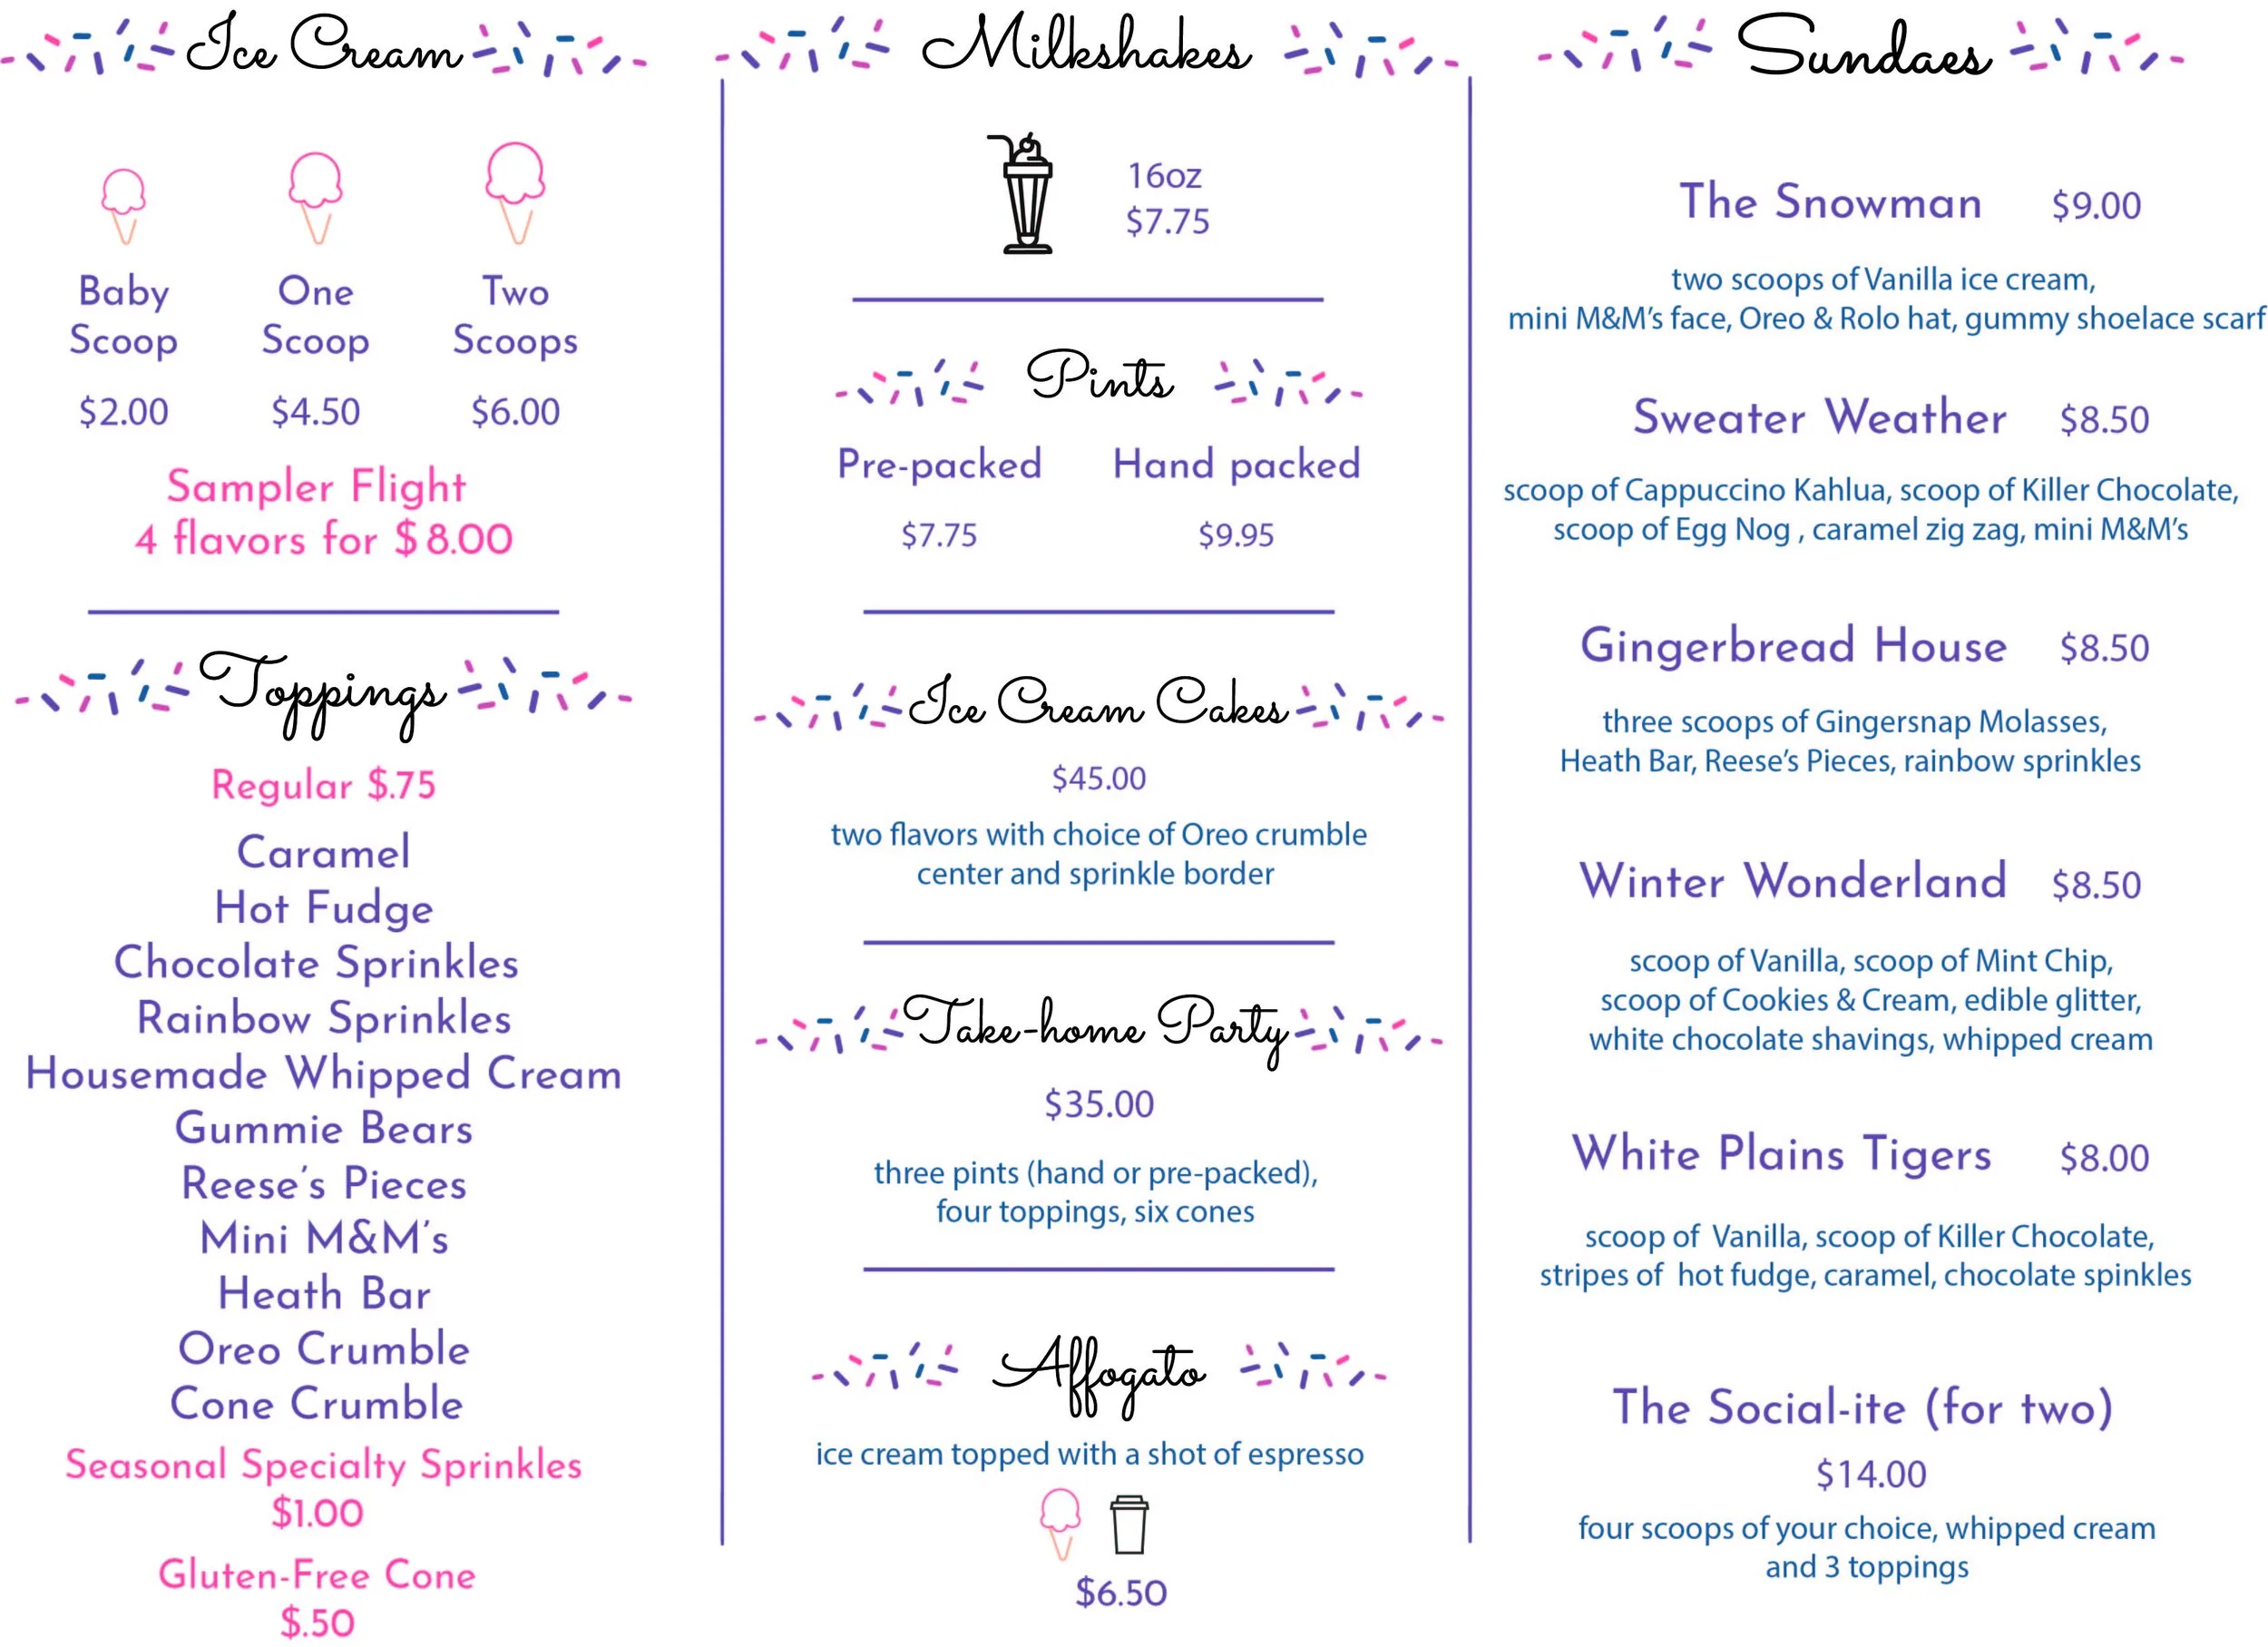 Ice Cream
Baby Scoop
One Scoop
Two Scoops
$2.00
$4.50
$6.00
Sampler Flight
4 flavors for $8.00
Toppings
Regular $.75
Caramel
Hot Fudge
Chocolate Sprinkles
Rainbow Sprinkles
Housemade Whipped Cream
Gummie Bears
Reese's Pieces
Mini M&M's
Heath Bar
Oreo Crumble
Cone Crumble
Seasonal Specialty Sprinkles
$1.00
Gluten-Free Cone
$.50
Milkshakes
16oz
$7.75
Pints
Pre-packed
Hand packed
$7.75
$9.95
Ice Cream Cakes
$45.00
two flavors with choice of Oreo crumble
center and sprinkle border
Take-home Party
$35.00
three pints (hand or pre-packed),
four toppings, six cones
Affogato
ice cream topped with a shot of espresso
$6.50
Sundaes
The Snowman $9.00
two scoops of Vanilla ice cream,
mini M&M's face, Oreo & Rolo hat, gummy shoelace scarf
Sweater Weather $8.50
scoop of Cappuccino Kahlua, scoop of Killer Chocolate,
scoop of Egg Nog , caramel zig zag, mini M&M's
Gingerbread House $8.50
three scoops of Gingersnap Molasses,
Heath Bar, Reese's Pieces, rainbow sprinkles
Winter Wonderland $8.50
scoop of Vanilla, scoop of Mint Chip,
scoop of Cookies & Cream, edible glitter,
white chocolate shavings, whipped cream
White Plains Tigers $8.00
scoop of Vanilla, scoop of Killer Chocolate,
stripes of hot fudge, caramel, chocolate spinkles
The Social-ite (for two)
$14.00
four scoops of your choice, whipped cream
and 3 toppings